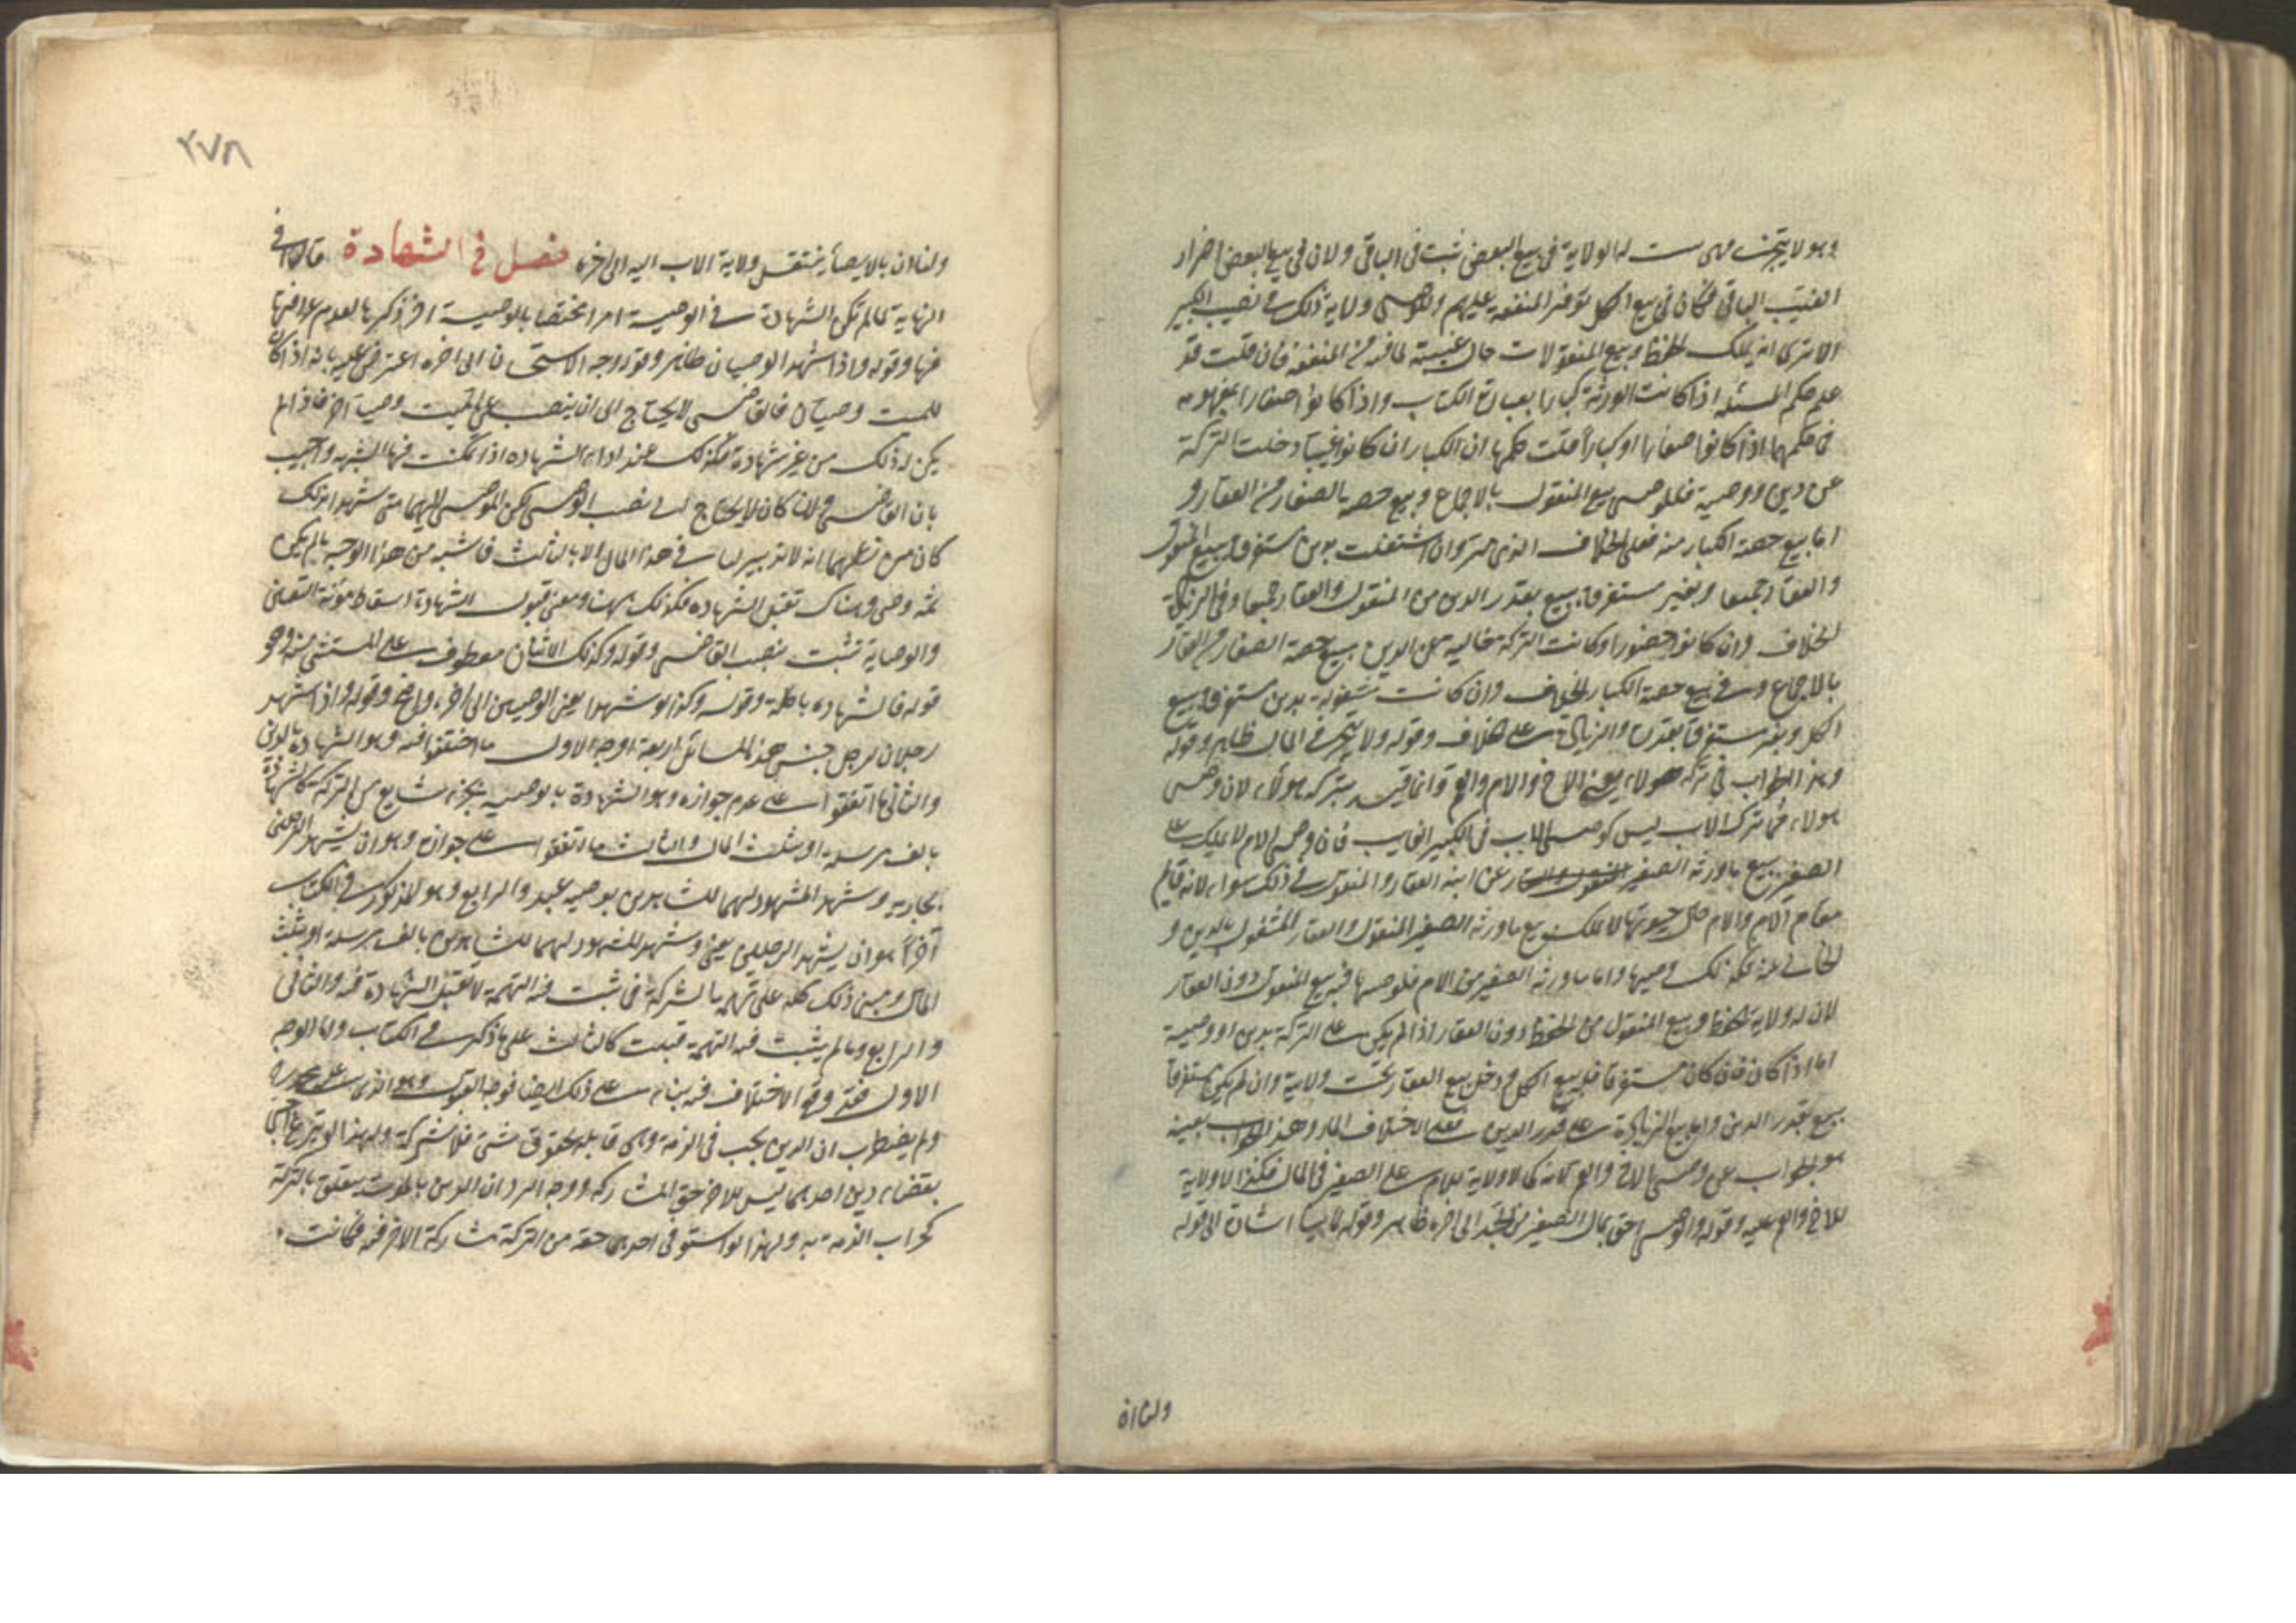 وهو لا يتجزى فمهى ثبت له الولاية فى بيع البعض ثبت فى الباقى ولان فى بيع البعض اضرار
الباقى فكان فى بيع الكل توفير المنفعة عليهم وللوصى ولاية ذلك فى نصيب الكبير
الا ترى انه يملك الحفظ وبيع المنقولات حال غيبته لما فيه من المنفعة فان قلت قد
علم حكم المسئلة اذا كانت الورثة كبارا بعبارة الكتاب واذا كانوا صغارا بمفهومه
فما حكمها اذا كانوا صغارا او كبارا قلت حكمها ان الكبار ان كانوا غيبا دخلت التركة
عن دين ووصية فللوصى بيع المنقول بالاجماع وبيع حصة الصغار من العقار و
اما بيع حصة الكبار منه فعلى الخلاف الذى مر وان اشتغلت بدين مستغرق يبيع المنقول
والعقار جميعا وبغير مستغرق يبيع بقدر الدين من المنقول والعقار جميعا وفى الزيادة
الخلاف وان كانوا حضورا وكانت التركة خالية عن الدين يبيع حصة الصغار من العقار
بالاجماع وفى بيع حصة الكبار الخلاف وان كانت مشغولة بدين مستغرق يبيع
الكل وبغير مستغرق بقدره والزيادة على خلاف وقوله ولا يتجر فى المال ظاهر وقوله
وهذا الجواب فى تركة هولاء يعنى الاخ والام والعم وانما قيد بتركة هولاء لان وصى
هولاء فى تركة الاب ليس كوصى الاب فى الكبير الغايب فان وصى الام لا يملك على
الصغير بيع ما ورثه الصغير عن ابيه العقار والمنقول فى ذلك سواء لانه قايم
مقام الام والام حال حيوتها لا تملك بيع ما ورثه الصغير المنقول والعقار المشغول بالدين و
الخالى عنه فكذلك وصيها واما ما ورثه الصغير من الام فلوصيها فيه بيع المنقول دون العقار
لان له ولاية الحفظ وبيع المنقول من الحفظ دون العقار اذا لم يكن على التركة دين او وصية
اما اذا كان فان كان مستغرقا فله بيع الكل ودخل بيع العقار تحت ولايته وان لم يكن مستغرقا
يبيع بقدر الدين واما بيع الزيادة على قدر الدين فعلى الاختلاف المار وهذا الجواب بعينه
هو الجواب فى وصى الاخ والعم لانه كما لا ولاية للام على الصغير فى المال فكذا لا ولاية
للاخ والعم عليه وقوله والوصى احق بمال الصغير من الجد الى اخره ظاهر وقوله لما بينا اشارة الى قوله
ولنا ان
٢٧٨
ولنا ان بالايصاء ينتقل ولاية الاب اليه الى اخره فصل فى الشهادة قال فى
النهاية لما لم تكن الشهادة فى الوصية امرا مختصا بالوصية اخر ذكرها لعدم عراقتها
فيها وقوله واذا شهد الوصيان ظاهر وقوله وجه الاستحسان الى اخره اعترض عليه بانه اذا كان
للميت وصيان فالقاضى لا يحتاج الى ان ينصب على الميت وصيا آخر فاذا لم
يكن له ذلك من غير شهادة فكذلك عند اداء الشهادة اذا تمكنت فيها الشبهة واجيب
بان القاضى وان كان لا يحتاج الى نصب الوصى لكن الموصى اليهما متى شهدا بذلك
كان من زعمهما انه لا تدبير لنا فى هذا المال الا بالثالث فاشبه من هذا الوجه ما لم يكن
ثمه وصى وهناك تقبل الشهادة فكذلك ههنا ومعنى قبول الشهادة اسقاط مؤنة التعيين
والوصاية تثبت بنصب القاضى وقوله وكذلك الابنان معطوف على المستثنى منه وهو
قوله فالشهادة باطلة وقوله وكذا لو شهدا يعنى الوصيين الى اخره واضح وقوله واذا شهد
رجلان لرجل جنس هذه المسائل اربعة اوجه الاول ما اختلفوا فيه وهو الشهادة بالدين
والثانى ما اتفقوا على عدم جوازه وهو الشهادة بالوصية بجزء شايع من التركة كالشهادة
بالف مرسلة او بثلث المال والثالث ما اتفقوا على جوازه وهو ان يشهد الرجلين
بجارية وشهد المشهود لهما للشاهدين بوصية عبد والرابع وهو المذكور فى الكتاب
آخرا هو ان يشهد الرجلين بعين وشهد المشهود لهما للشاهدين بالف مرسلة او بثلث
المال ومبنى ذلك كله على تهمة الشركة فما ثبت فيه التهمة لا تقبل الشهادة فيه والثانى
والرابع وما لم يثبت فيه التهمة قبلت كالثالث على ما ذكر فى الكتاب واما الوجه
الاول فقد وقع الاختلاف فيه بناء على ذلك ايضا فوجه القبول وهو الذى
ولم يضطرب ان الدين يجب فى الذمة وهى قابلة لحقوق شتى فلا شركة ولهذا لو تبرع اجنبى
بقضاء دين احدهما ليس للاخر حق المشاركة ووجه الرد ان الدين بالموت يتعلق بالتركة
لخراب الذمة به ولهذا لو استوفى احدهما حقه من التركة شاركه الاخر فيه فكانت